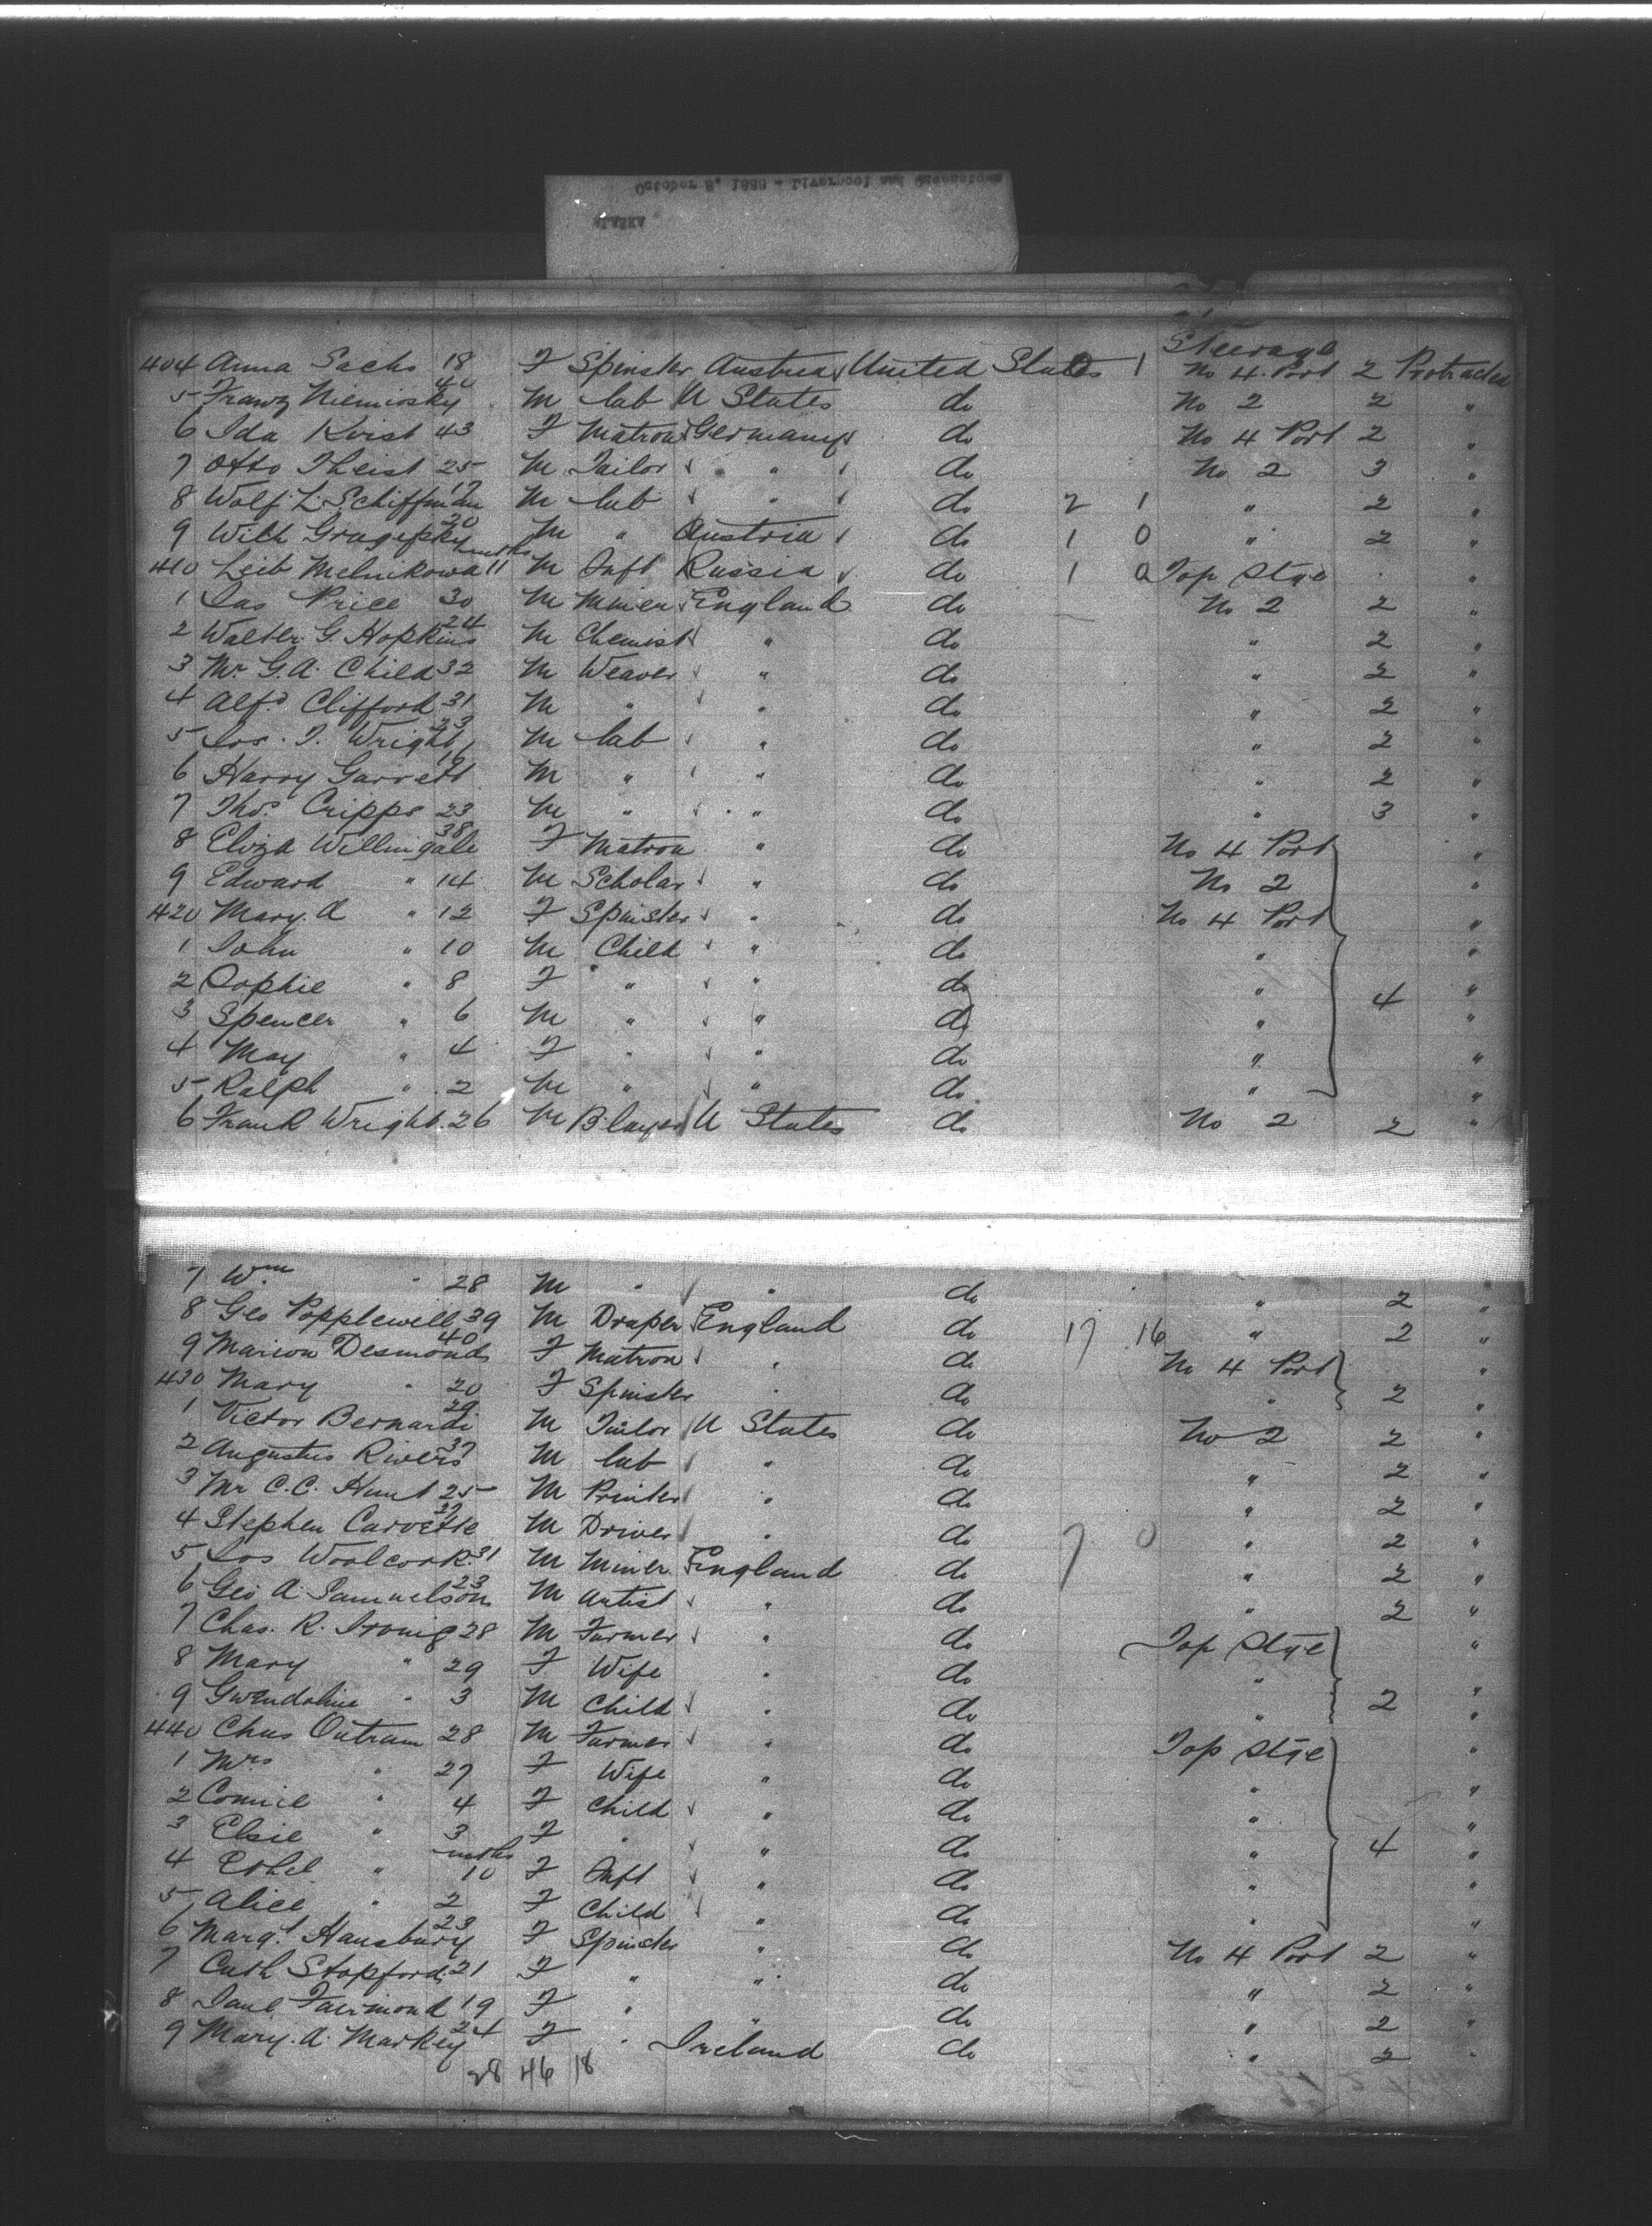 October 8, 1889 - Liverpool and Queenstown
ALASKA
Steerage
404 Anna Sachs 18 F Spinster Austria United States 0 1 No 4 Port 2 Protracted
5 Franz Niemiosky 40 M lab U States do No 2 2 "
6 Ida Krist 43 F Matron Germany do No 4 Port 2 "
7 Otto Theist 25 M Tailor " do No 2 3 "
8 Wolf L. Schiffman 17 M lab " do 2 1 " 2 "
9 Wilh 20 M " Austria do 1 0 " 2 "
410 Leib Melnikowa mths 11 M Inft Russia do 1 0 Top Stge "
1 Jas Price 30 M Miner England do No 2 2 "
2 Walter G. Hopkins 24 M Chemist " do " 2 "
3 Mr G.A. Child 32 M Weaver " do " 2 "
4 Alfd Clifford 31 M " " do " 2 "
5 Jos. T. Wright 23 M lab " do " 2 "
6 Harry Garrett 16 M " " do " 2 "
7 Thos Cripps 23 M " " do " 3 "
8 Eliza Willingale 38 F Matron " do No 4 Port "
9 Edward " 14 M Scholar " do No 2 "
420 Mary. A " 12 F Spinster " do No 4 Port "
1 John " 10 M Child " do " "
2 Sophie " 8 F " " do " 4 "
3 Spencer " 6 M " " do " "
4 May " 4 F " " do " "
5 Ralph " 2 M " " do " "
6 Frank Wright 26 M B.layer U States do No 2 2 "
7 Wm " 28 M " " do " 2 "
8 Geo Popplewell 39 M Draper England do 17 16 " 2 "
9 Marion Desmonds 40 F Matron " do No 4 Port "
430 Mary " 20 F Spinster " do " 2 "
1 Victor Bernardi 29 M Tailor U States do No 2 2 "
2 Augustus Rivers 37 M lab " do " 2 "
3 Mr C.C. Hunt 25 M Printer " do " 2 "
4 Stephen Carvette 27 M Driver " do 7 0 " 2 "
5 Jos Woolcock 31 M Miner England do " 2 "
6 Geo A. Samuelson 23 M Artist " do " 2 "
7 Chas. R. Irving 28 M Farmer " do Top Stge "
8 Mary " 29 F Wife " do " "
9 Gwendoline " 3 M Child " do " 2 "
440 Chas Outram 28 M Farmer " do Top Stge "
1 Mrs " 27 F Wife " do " "
2 Connie " 4 F Child " do " "
3 Elsie " 3 F " " do " 4 "
4 Ethel " mths 10 F Inft " do " "
5 Alice " 2 F Child " do " "
6 Margt Hansbury 23 F Spinster " do No 4 Port 2 "
7 Cath Stopford 21 F " " do " 2 "
8 Jane Fairmond 19 F " " do " 2 "
9 Mary. A. Markey 24 F " Ireland do " 2
28 46 18